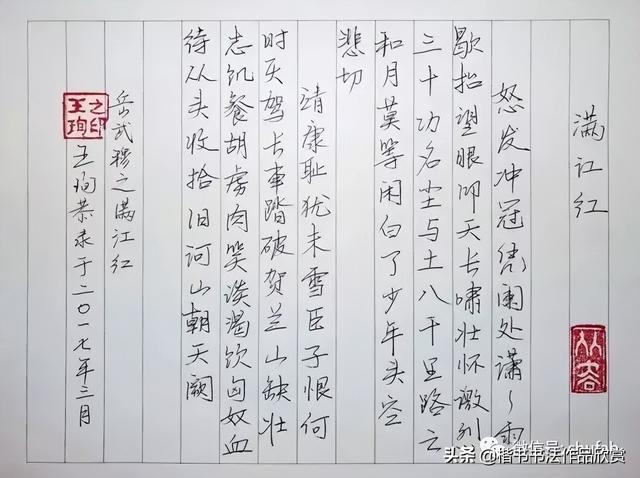 满江红
从容
怒发冲冠凭阑处潇~雨
歇抬望眼仰天长啸壮怀激烈
三十功名尘与土八千里路云
和月莫等闲白了少年头空
悲切
靖康耻犹未雪臣子恨何
时灭驾长车踏破贺兰山缺壮
志饥餐胡虏肉笑谈渴饮匈奴血
待从头收拾旧河山朝天阙
岳武穆之满江红
王珣恭录于二〇一七年三月
王珣之印
微信号:
头条 @楷书书法作品欣赏